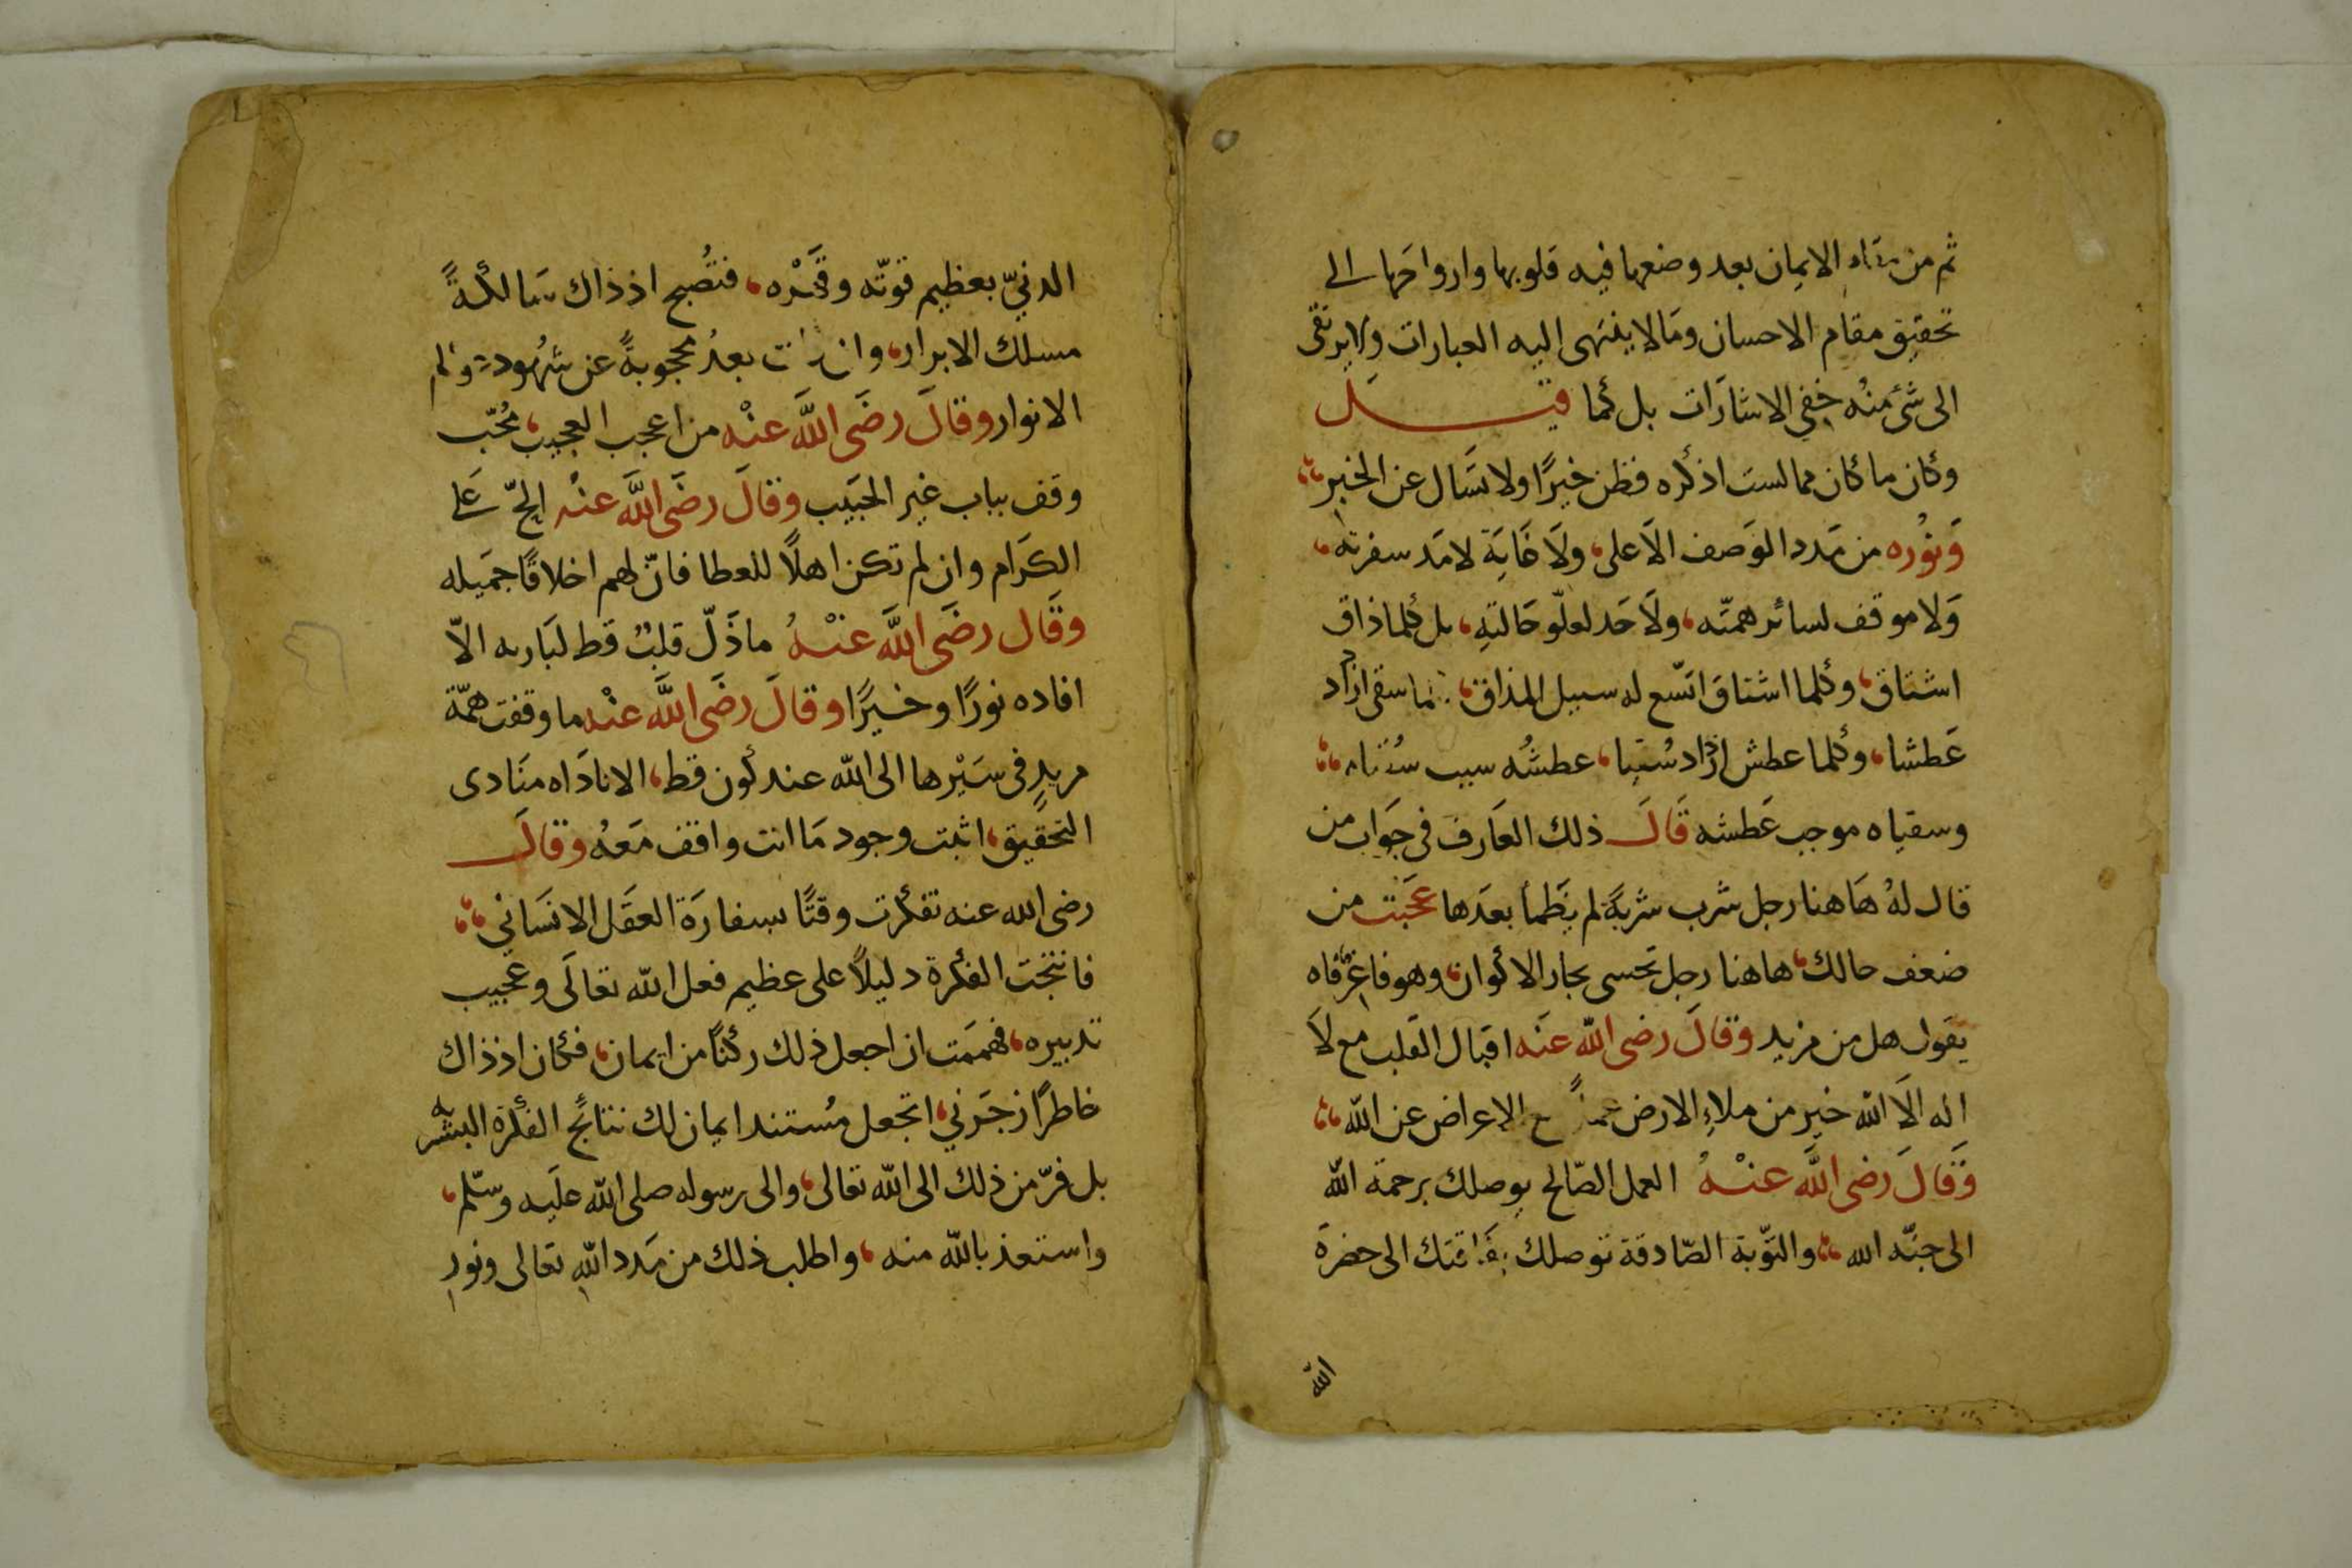 ثم من مقام الايمان بعد وضعها فيه قلوبها وارواحها الى
تحقيق مقام الاحسان ومَا لا ينتهى اليه العبارات ولا يرتقى
الى شئ منْه خفي الاشارَات بل كما قيل
وكان ما كان مما لستُ اذكره فظن خيرًا ولا تسَال عن الخبرِ
وَنوُره من مَدد الوَصف الاَعلى، ولَا غَايَة لامَد سفرته،
وَلا موقف لسائر همّته، ولَا حَد لعلّو حَالتهِ، بل كلما ذاق
اشتاق، وكلما اشتاق اتّسع له سبيل المذاق، سقى ازداد
عَطشا، وكلما عطش ازداد سُقيا، عطشُه سبب سُقياه
وسقياه موجب عَطشه قَالَ ذلك العَارف في جوَاب من
قال لهُ هَاهنا رجل شرب شربةً لم يَظمأ بعدَها عجَبت من
ضعف حالك، هاهنا رجل تحَسى بحار الاكوان، وهو فاغرٌ فاه
يقَول هل من مزيد وقالَ رضى الله عنَه اقبال القَلب مع لاَ
اله الاَ الله خير من ملاءِ الارض عملًا مع الاعراض عن الله
وَقَالَ رضى اللَّه عنْهُ العمل الصّالح يوصلك برحمة الله
الى جنّه الله، والتّوبة الصّادقة توصلك بفَاقتك الى حضرة
الله
الدنيّ بعظيم قوتّه وقَهْره، فتصُبح اذ ذاك سَالكةً
مسلك الابرار، وان بعدُ محجوبةً عن شهُود
الانوار وقالَ رضَى اللَّه عنْه من اعجب العجيب، مُحّب
وقف بباب غير الحبَيب وقالَ رضَى اللَّه عنْه الحّ عَلى
الكرَام وان لم تكن اهلًا للعطا فانّ لهم اخلاقًا جمَيله
وقَال رضَى اللَّه عنْهُ ما ذَلّ قلبٌ قط لبَاريه الاّ
افاده نورًا وخيرًا وقالَ رضَى اللَّه عنْه ما وقفت همّة
مريدٍ فى سَيْرها الى الله عند كون قط، الا نادَاه منَادى
التحَقيق، اثبت وجود مَا انت واقف مَعهُ وقالَ
رضى الله عنه تفكرت وقتًا بسفارَة العقَل الانسَاني
فانتجَت الفكرة دليلاً على عظيم فعل الله تعالَى وعجيب
تدبيره، فهممَت ان اجعل ذلك ركنًا من ايمان، فكان اذ ذاك
خاطرًا زجَرني، اتجعل مُستند ايمان لك نتائج الفكرة البشَريه
بل فرّ من ذلك الى الله تعالى، والى رسوله صلى الله علَيه وسّلم،
واستعذ بالله منه، واطلب ذلك من مَدد اللهِ تعالى ونورِ